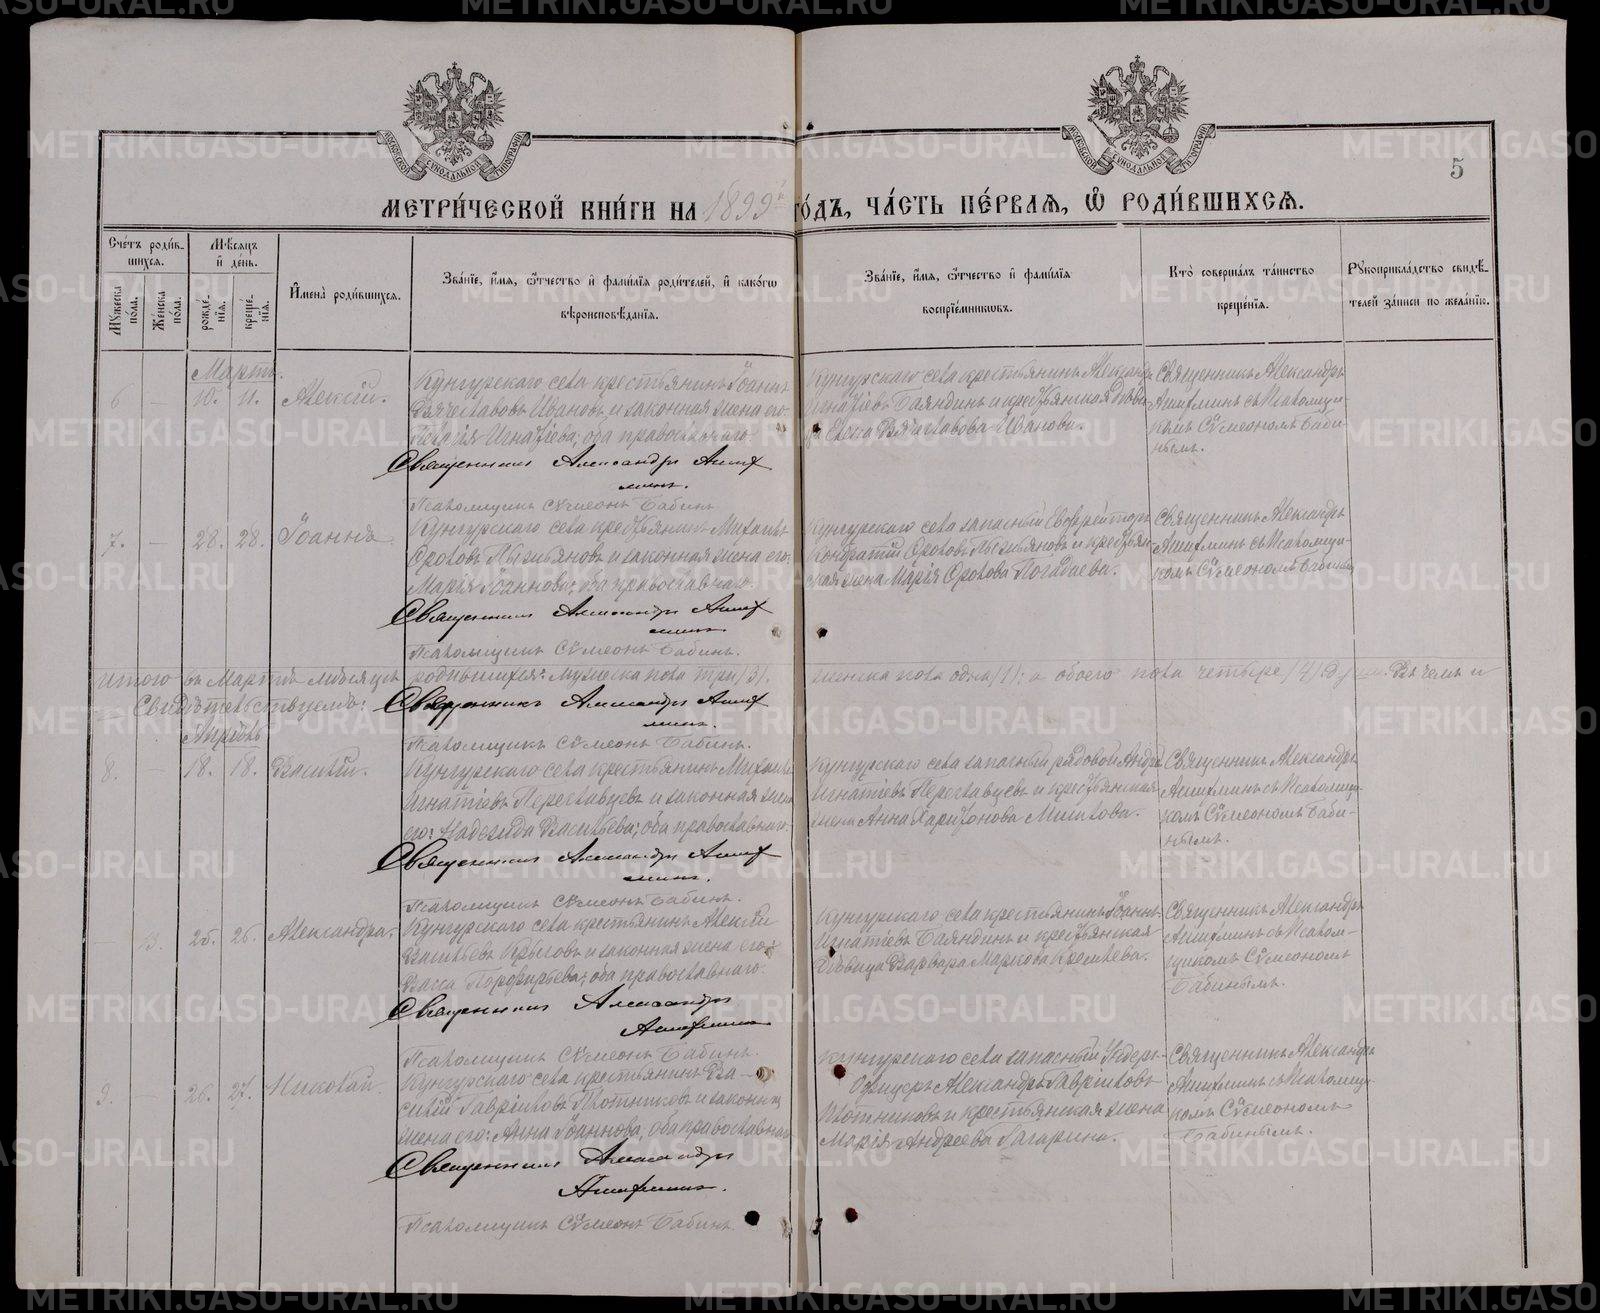 МЕТРИ́ЧЕСКОЙ КНИ́ГИ НА 1899й ГО́ДЪ, ЧА́СТЬ ПЕ́РВАЯ, Ѡ҆ РОДИ́ВШИХСЯ.
5
Сче́тъ роди́в-
шихся.
Мꙋ́жеска по́ла.
Же́нска по́ла.
Мѣ́сяцъ
и҆ де́нь.
рожде́-
нїя.
креще́-
нїя.
И҆мена̀ роди́вшихся.
Зва́нїе, и҆́мя, ѻ҆́тчество и҆ фами́лїя роди́телей, и҆ како́гѡ
вѣроисповѣ́данїя.
Зва́нїе, и҆́мя, ѻ҆́тчество и҆ фами́лїя
воспрїе́мникѡвъ.
Кто̀ соверша́лъ та́инство
креще́нїя.
Рꙋкоприкла́дство свидѣ́-
телей за́писи по жела́нїю.
Мартъ.
6 — 10. 11. Алексій.
Кунгурскаго села крестьянинъ Іоаннъ
Вячеславовъ Ивановъ и законная жена его:
Пелагія Игнатіева; оба православнаго.
Священникъ Александръ Ашиф
минъ.
Псаломщикъ Сѵмеонъ Бабинъ
Кунгурскаго села крестьянинъ Александръ
Игнатіевъ Баяндинъ и крестьянская дѣви-
ца Елена Вячеславова Иванова.
Священникъ Александръ
Ашифминъ съ Псаломщи-
комъ Сѵмеономъ Баби-
нымъ.
7. — 28. 28. Іоаннъ
Кунгурскаго села крестьянинъ Михаилъ
и законная жена его:
Марія Іоаннова; оба православнаго.
Священникъ Александръ Ашиф
минъ
Псаломщикъ Сѵмеонъ Бабинъ.
Кунгурскаго села запасный Ефрейторъ
Кондратій и крестьян-
ская жена Марія Погадаева.
Священникъ Александръ
Ашифминъ съ Псаломщи-
комъ Сѵмеономъ Бабинымъ
Итого въ Мартѣ мѣсяцѣ родившихся: мужеска пола три /3/. женска пола одна /1/; а обоего пола четыре /4/ душ. Въ чемъ и
Свидѣтельствуемъ:
Священникъ Александръ Ашиф
минъ.
Псаломщикъ Сѵмеонъ Бабинъ.
Апрѣль
8. — 18. 18. Василій.
Кунгурскаго села крестьянинъ Михаилъ
Игнатіевъ и законная жена
его: Надежда Васильева; оба православнаго.
Священникъ Александръ Ашиф
минъ.
Псаломщикъ Сѵмеонъ Бабинъ.
Кунгурскаго села запасный рядовой Андрей
Игнатіевъ и крестьянская
жена Анна Харитонова
Священникъ Александръ
Ашифминъ съ Псаломщи-
комъ Сѵмеономъ Баби-
нымъ.
— 3. 25. 26. Александра.
Кунгурскаго села крестьянинъ Алексій
Васильевъ Крыловъ и законная жена его:
Васса Порфирьева; оба православнаго.
Священникъ Александръ
Ашифминъ
Псаломщикъ Сѵмеонъ Бабинъ.
Кунгурскаго села крестьянинъ Іоаннъ
Игнатіевъ Баяндинъ и крестьянская
дѣвица Варвара Маркова
Священникъ Александръ
Ашифминъ съ Псалом-
щикомъ Сѵмеономъ
Бабинымъ.
9. — 26. 27. Николай.
Кунгурскаго села крестьянинъ Ва-
силій Гавріиловъ Плотниковъ и законная
жена его: Анна Іоаннова; оба православнаго
Священникъ Александръ
Ашифминъ.
Псаломщикъ Сѵмеонъ Бабинъ.
Кунгурскаго села запасный Унтеръ-
Офицеръ Александръ Гавріиловъ
Плотниковъ и крестьянская жена
Марія Андреева Гагарина.
Священникъ Александръ
Ашифминъ съ Псаломщи-
комъ Сѵмеономъ
Бабинымъ.
METRIKI.GASO-URAL.RU